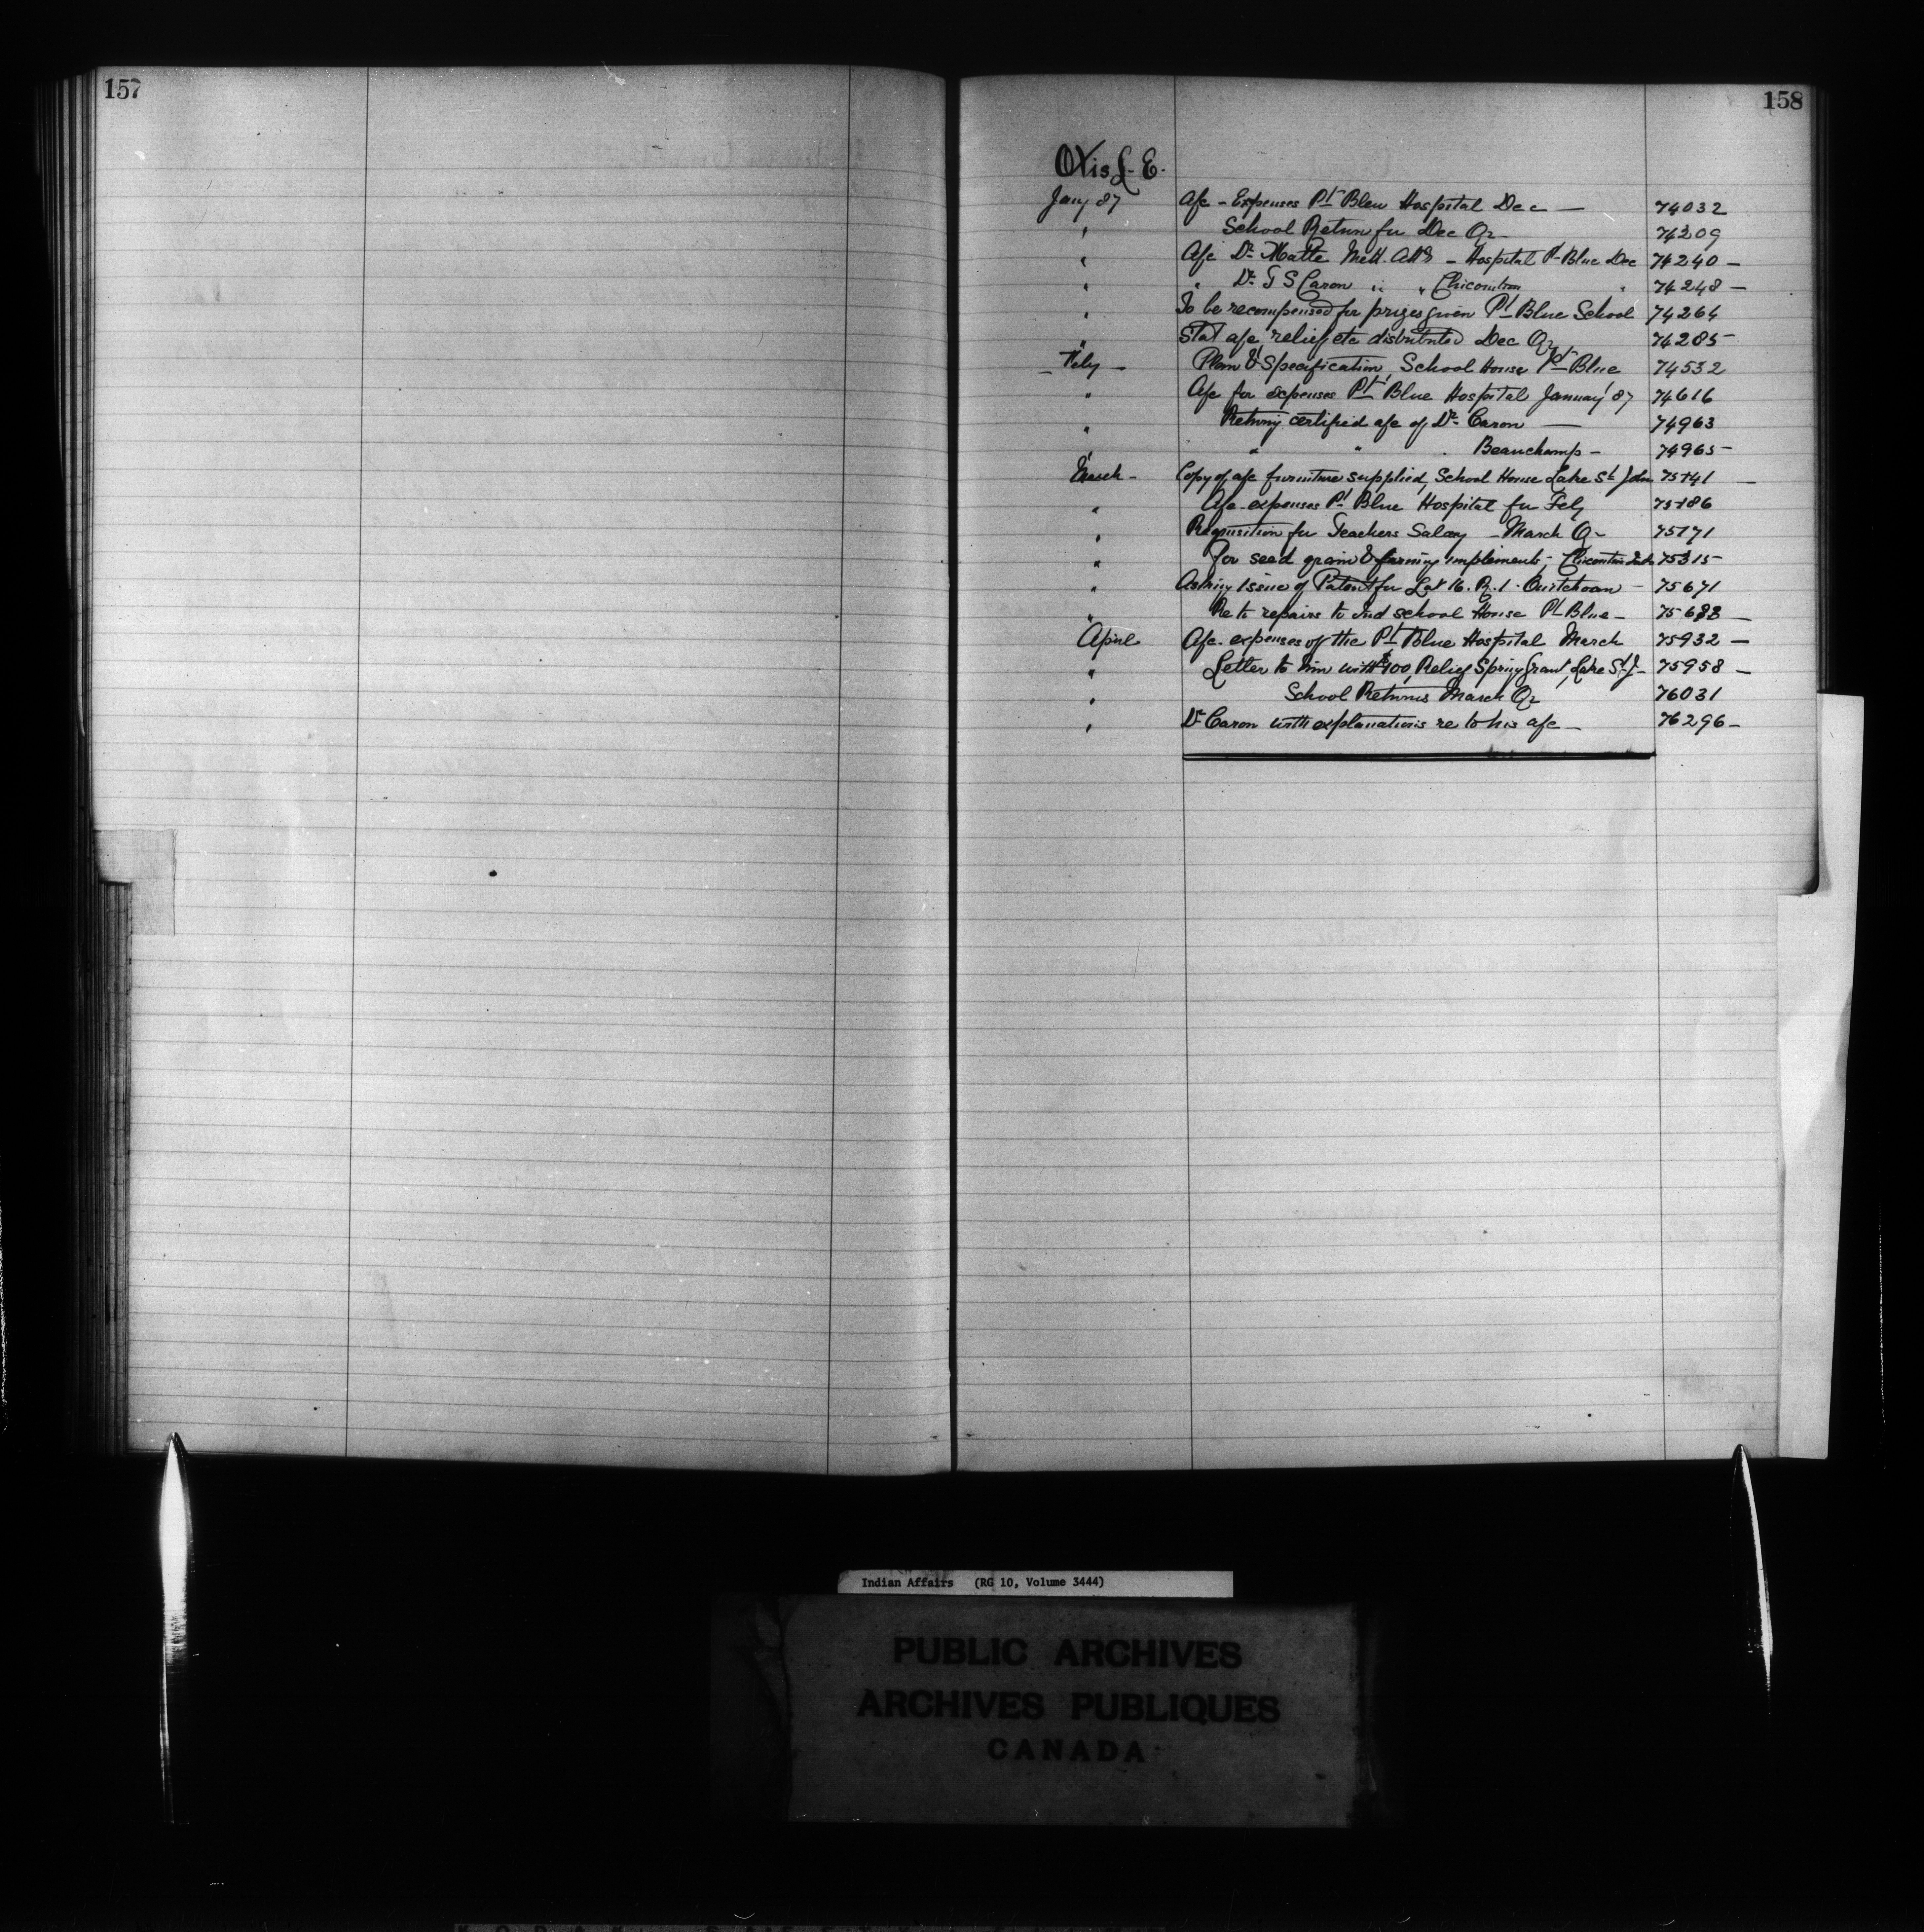 157
158
Otis L. E.
Jany 87 a/c - Expenses Pt Bleu Hospital Dec — 74032
" School Return for Dec Qr - 74209
" a/c Dr Matte Med. Att - Hospital Pt Blue Dec 74240 -
" " Dr J S Caron " " Chicoutimi " 74248 -
" To be recompensed for prizes given Pt Blue School 74264
" Stat a/c relief etc distributed Dec Qr 74285
- Feby - Plan & Specification, School House Pt Blue 74532
" a/c for expenses Pt Blue Hospital January '87 74616
" Returning certified a/c of Dr Caron — 74963
" " " Beauchamp - 74965 -
March - Copy of a/c furniture supplied, School House Lake St John 75141 -
" a/c expenses Pt Blue Hospital for Feby 75186
" Requisition for Teachers Salary - March Qr 75171
" for seed grain & farming implements - Chicoutimi 75315
" Asking issue of Patent for Lot 16. R. 1 - Ouiatchouan - 75671
" Re to repairs to Ind school House Pt Blue - 75688 -
April a/c expenses of the Pt Blue Hospital March 75932 -
" Letter to him with $100, Relief Spring Grant, Lake St J - 75958 -
" School Returns March Qr 76031
" Dr Caron with explanations re to his a/c - 76296 -
Indian Affairs (RG 10, Volume 3444)
PUBLIC ARCHIVES
ARCHIVES PUBLIQUES
CANADA